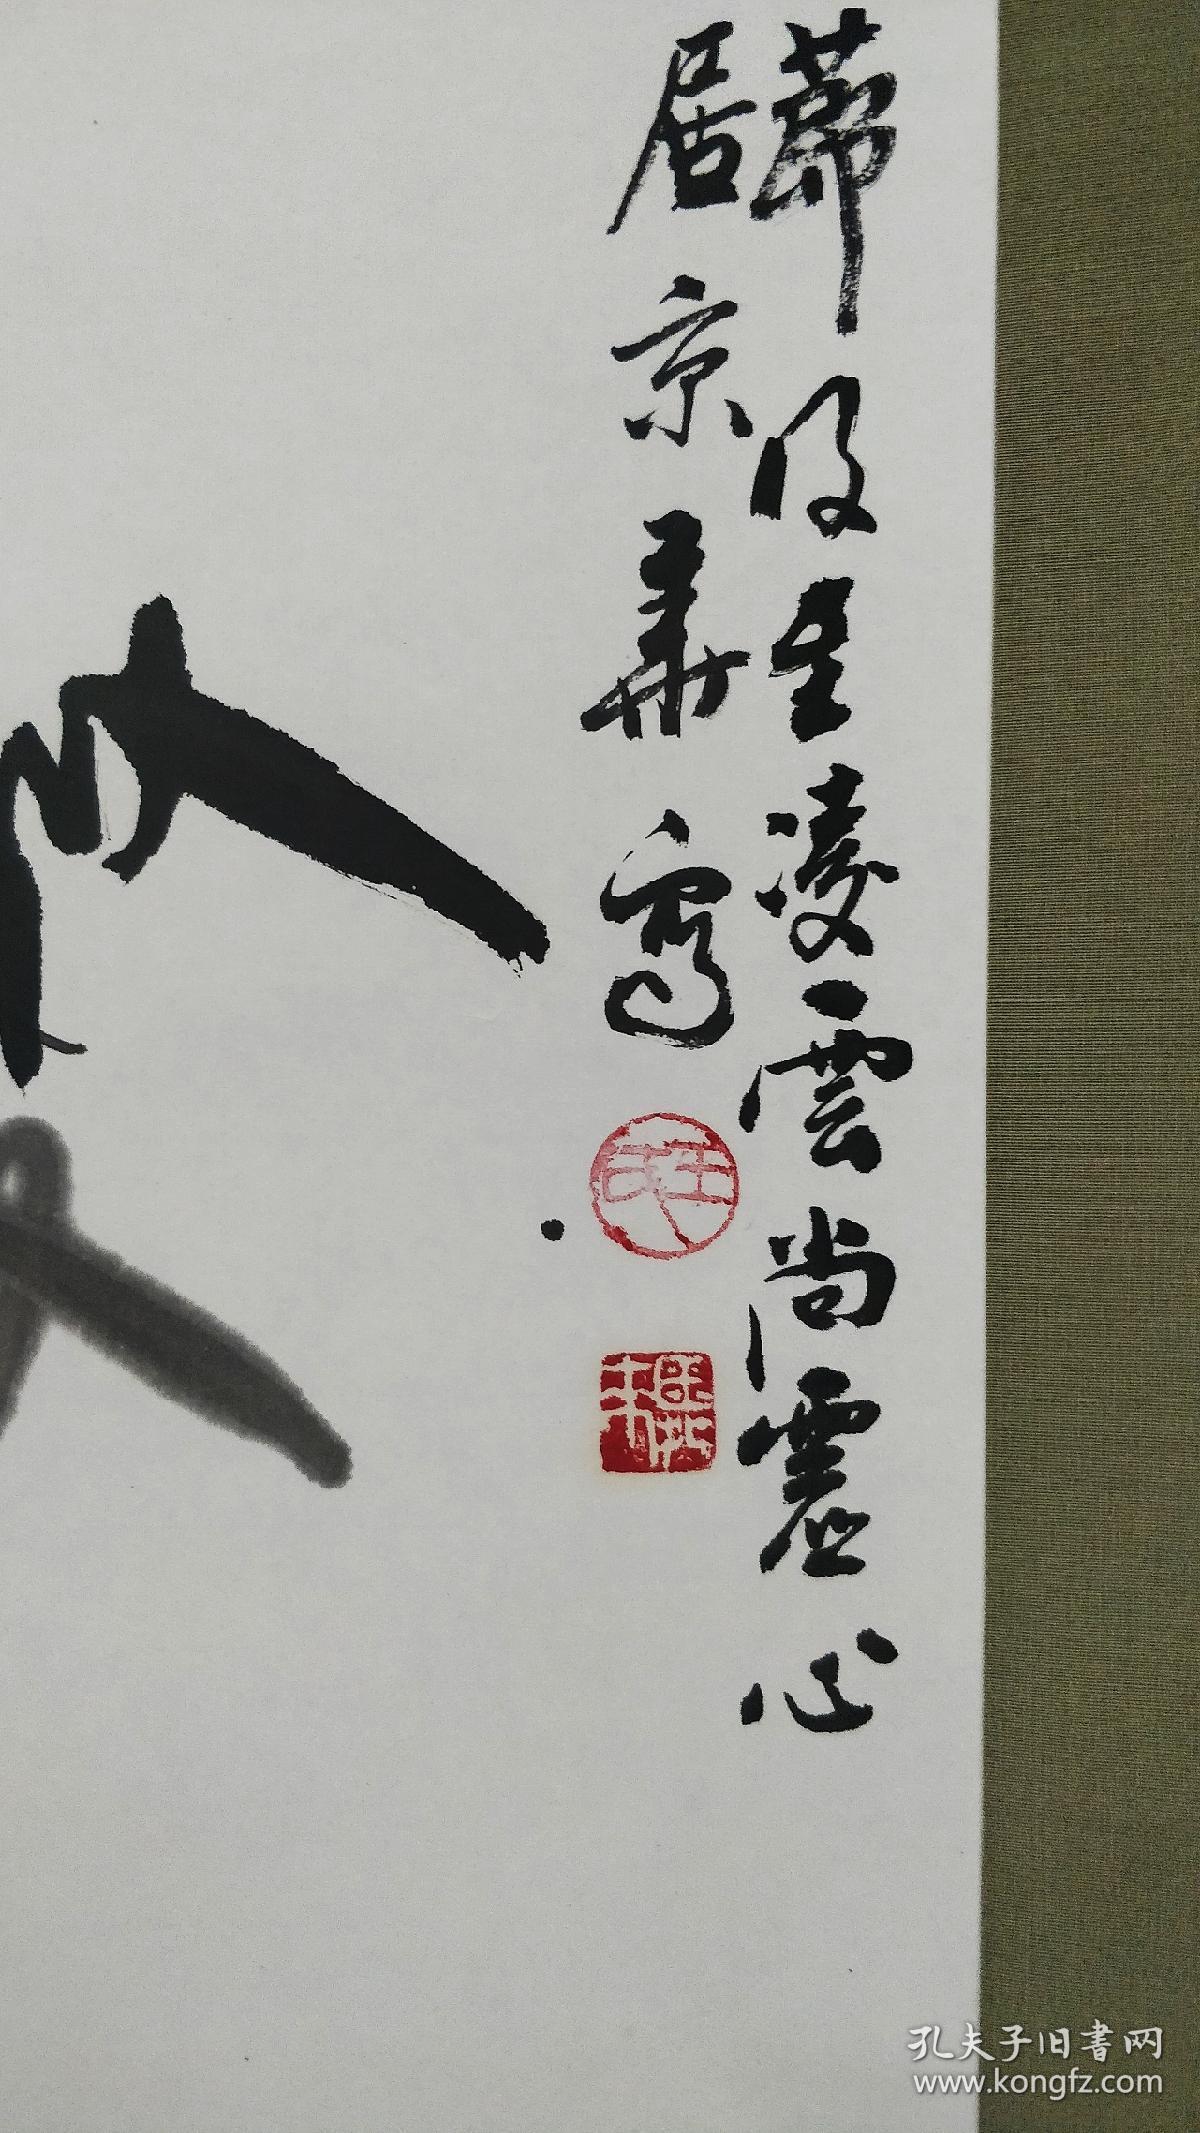 節 及至凌雲尚虛心
居京華寫
孔夫子旧書网
www.kongfz.com